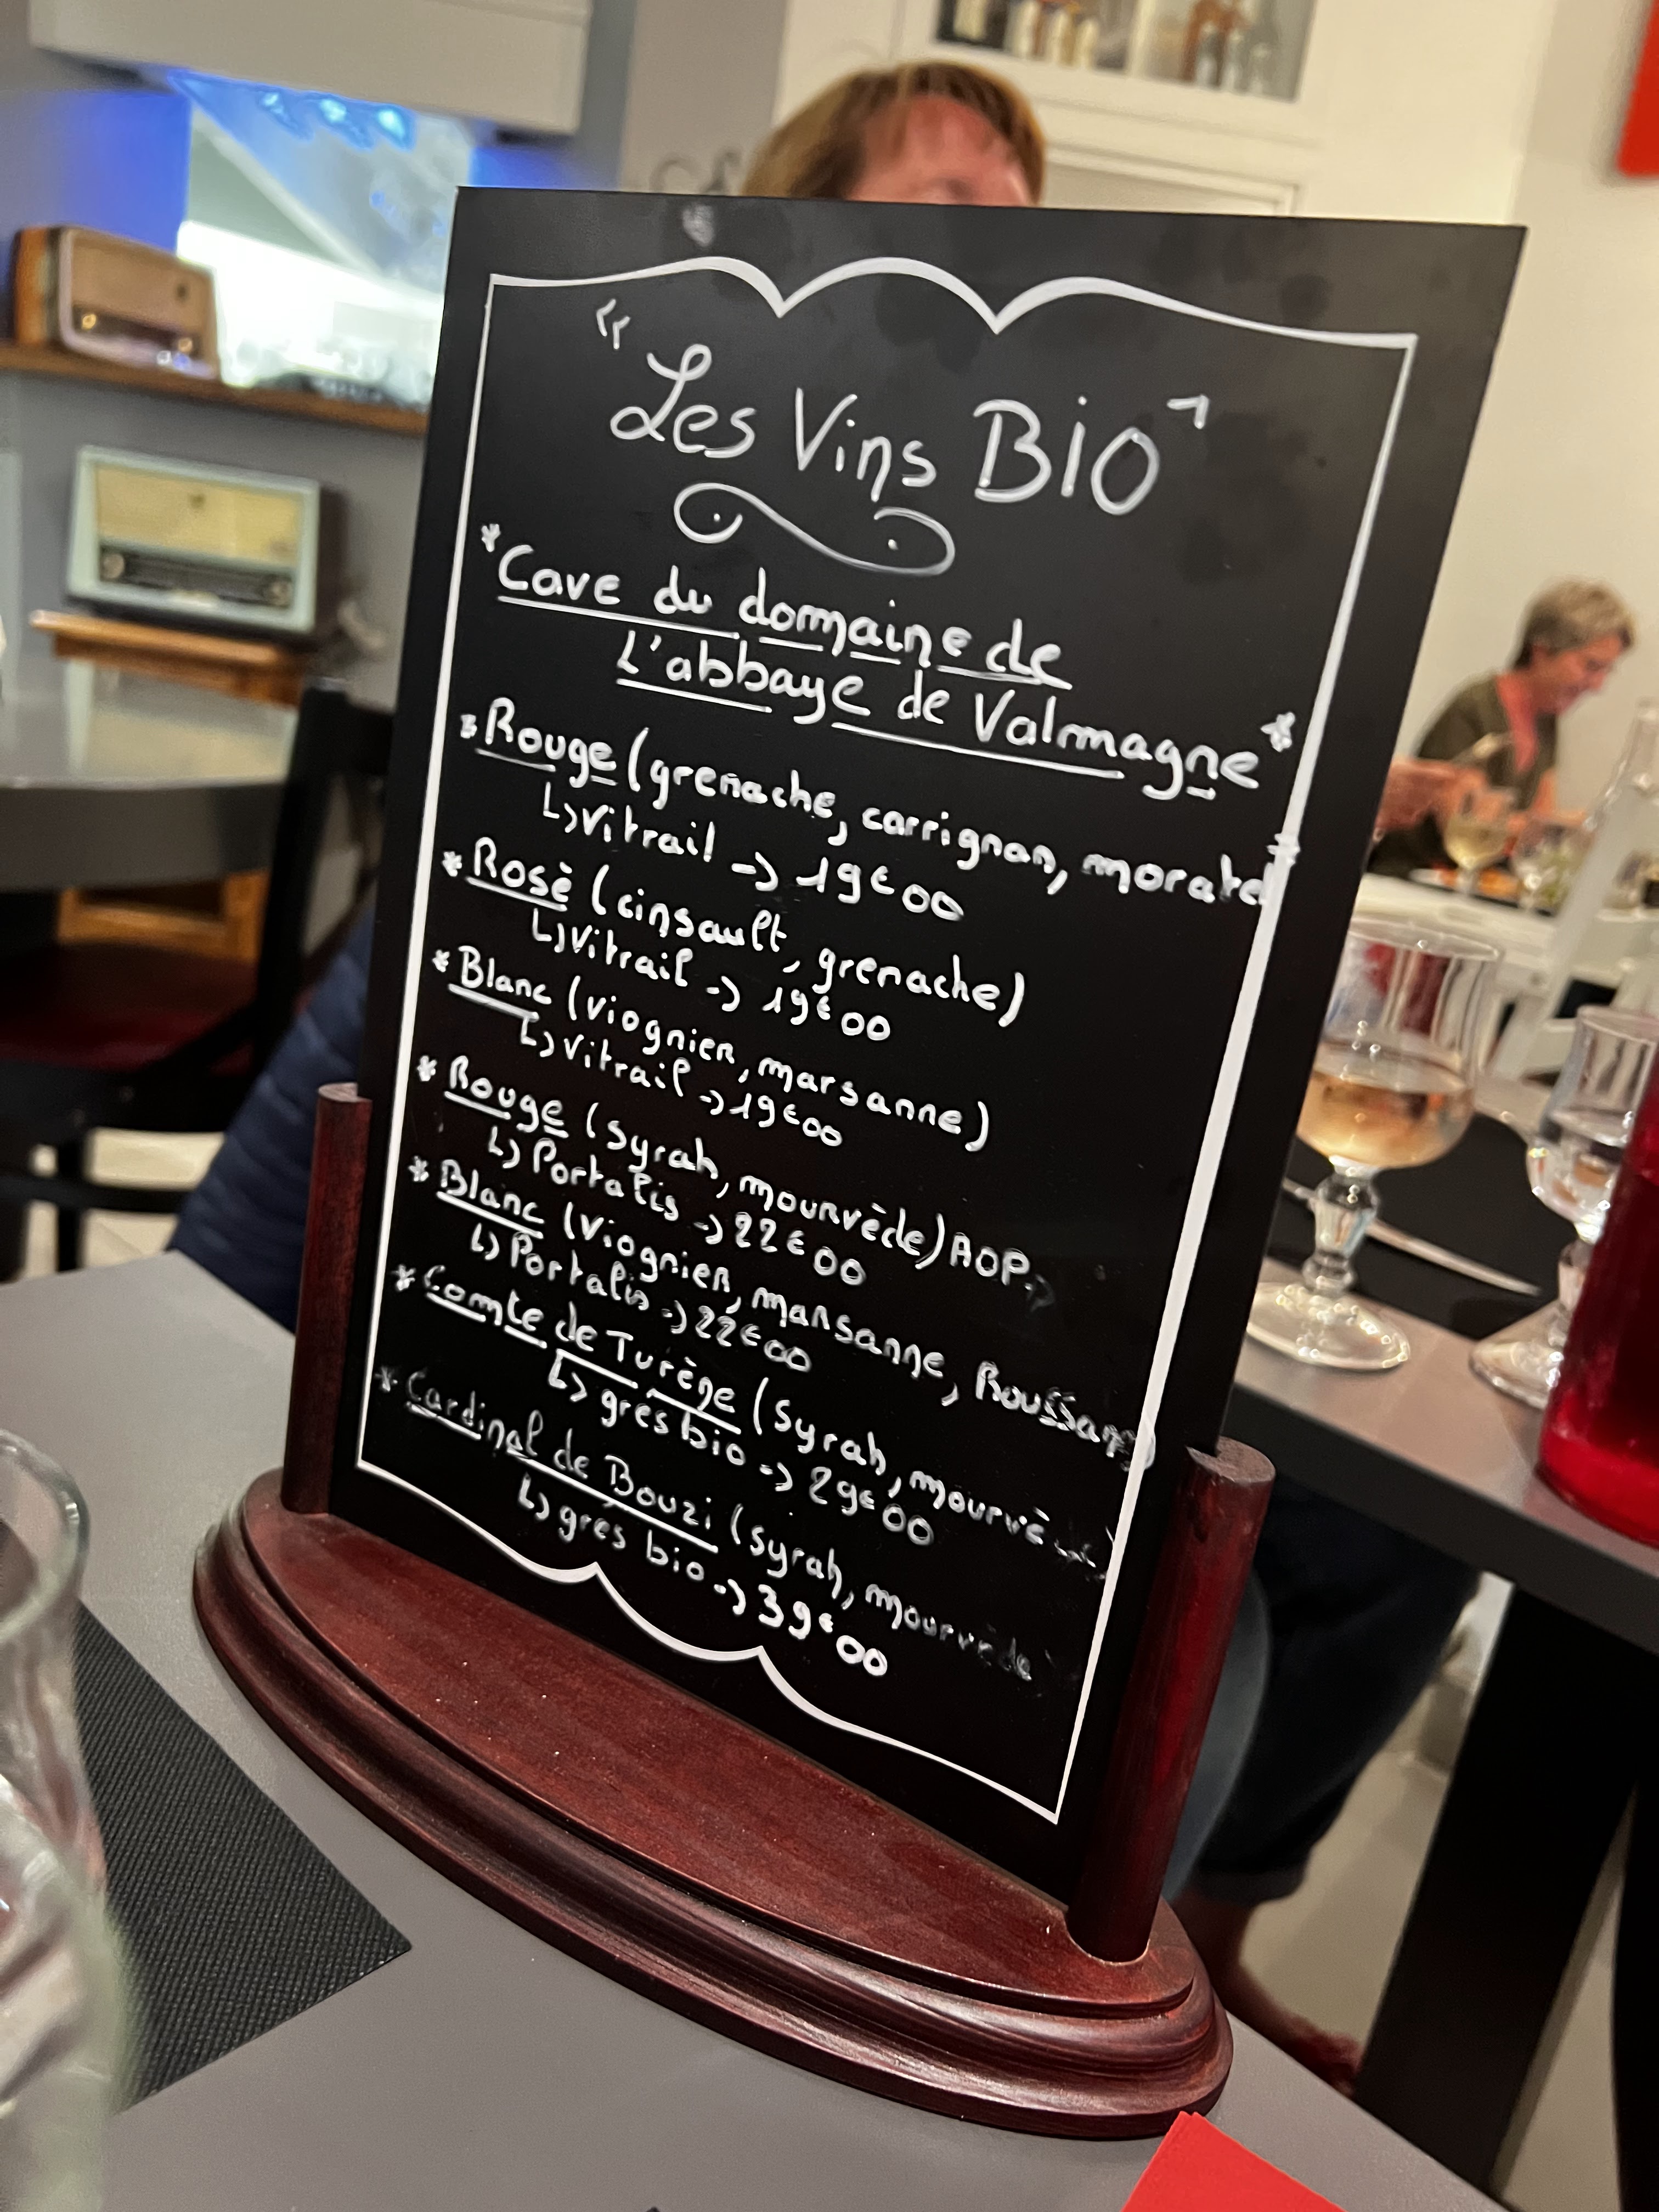 "Les Vins BIO"
*Cave du domaine de
L'abbaye de Valmagne*
*Rouge (grenache, carrignan, moratel
↳Vitrail -> 19€00
*Rosè (cinsault, grenache)
↳Vitrail -> 19€00
*Blanc (Viognier, marsanne)
↳Vitrail -> 19€00
*Rouge (Syrah, mourvède) AOP.
↳Portalis -> 22€00
*Blanc (Viognier, marsanne, Roussanne)
↳Portalis -> 22€00
*Comte de Turène (Syrah, mourvède)
↳grès bio -> 29€00
*Cardinal de Bouzi (Syrah, mourvède
↳grès bio -> 39€00